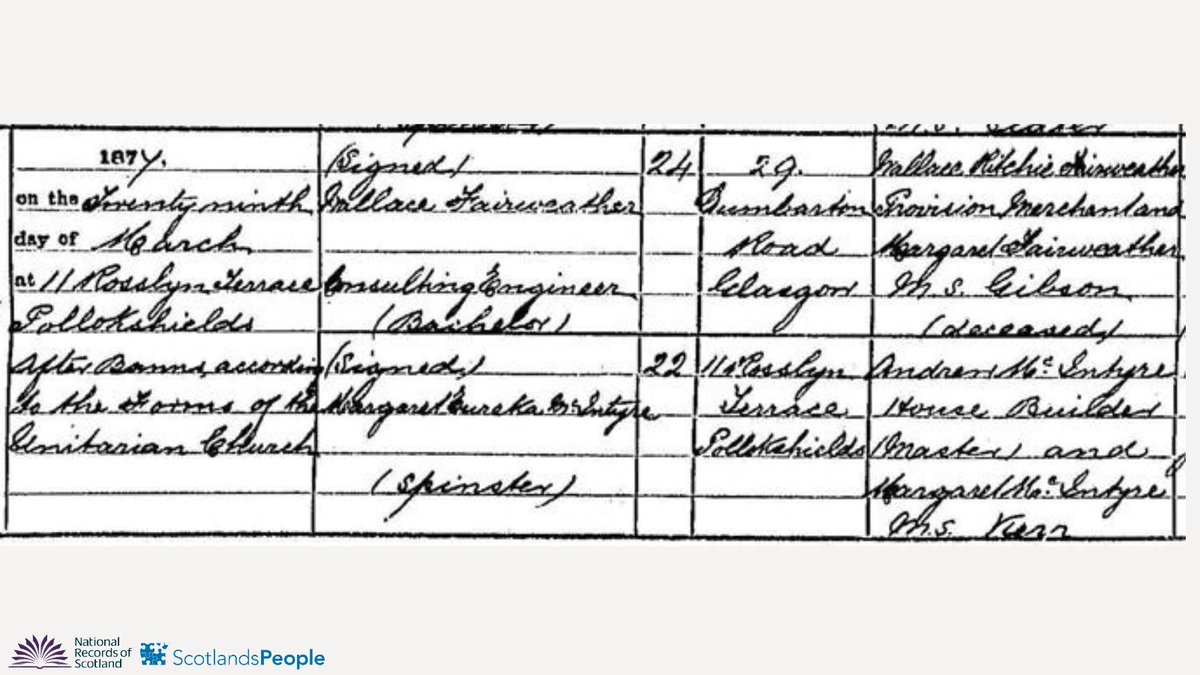 1877.
on the Twenty ninth
day of March
at 11 Rosslyn Terrace
Pollokshields
After Banns, according
to the Forms of the
Unitarian Church
(Signed)
Wallace Fairweather
Consulting Engineer
(Bachelor)
(Signed)
Margaret Eureka McIntyre
(Spinster)
24
22
29.
Dumbarton
Road
Glasgow
11 Rosslyn
Terrace
Pollokshields
Wallace Ritchie Fairweather
Provision Merchant and
Margaret Fairweather
M.S. Gibson
(deceased)
Andrew McIntyre
House Builder
(Master) and
Margaret McIntyre
M.S. Kerr
National
Records of
Scotland
ScotlandsPeople